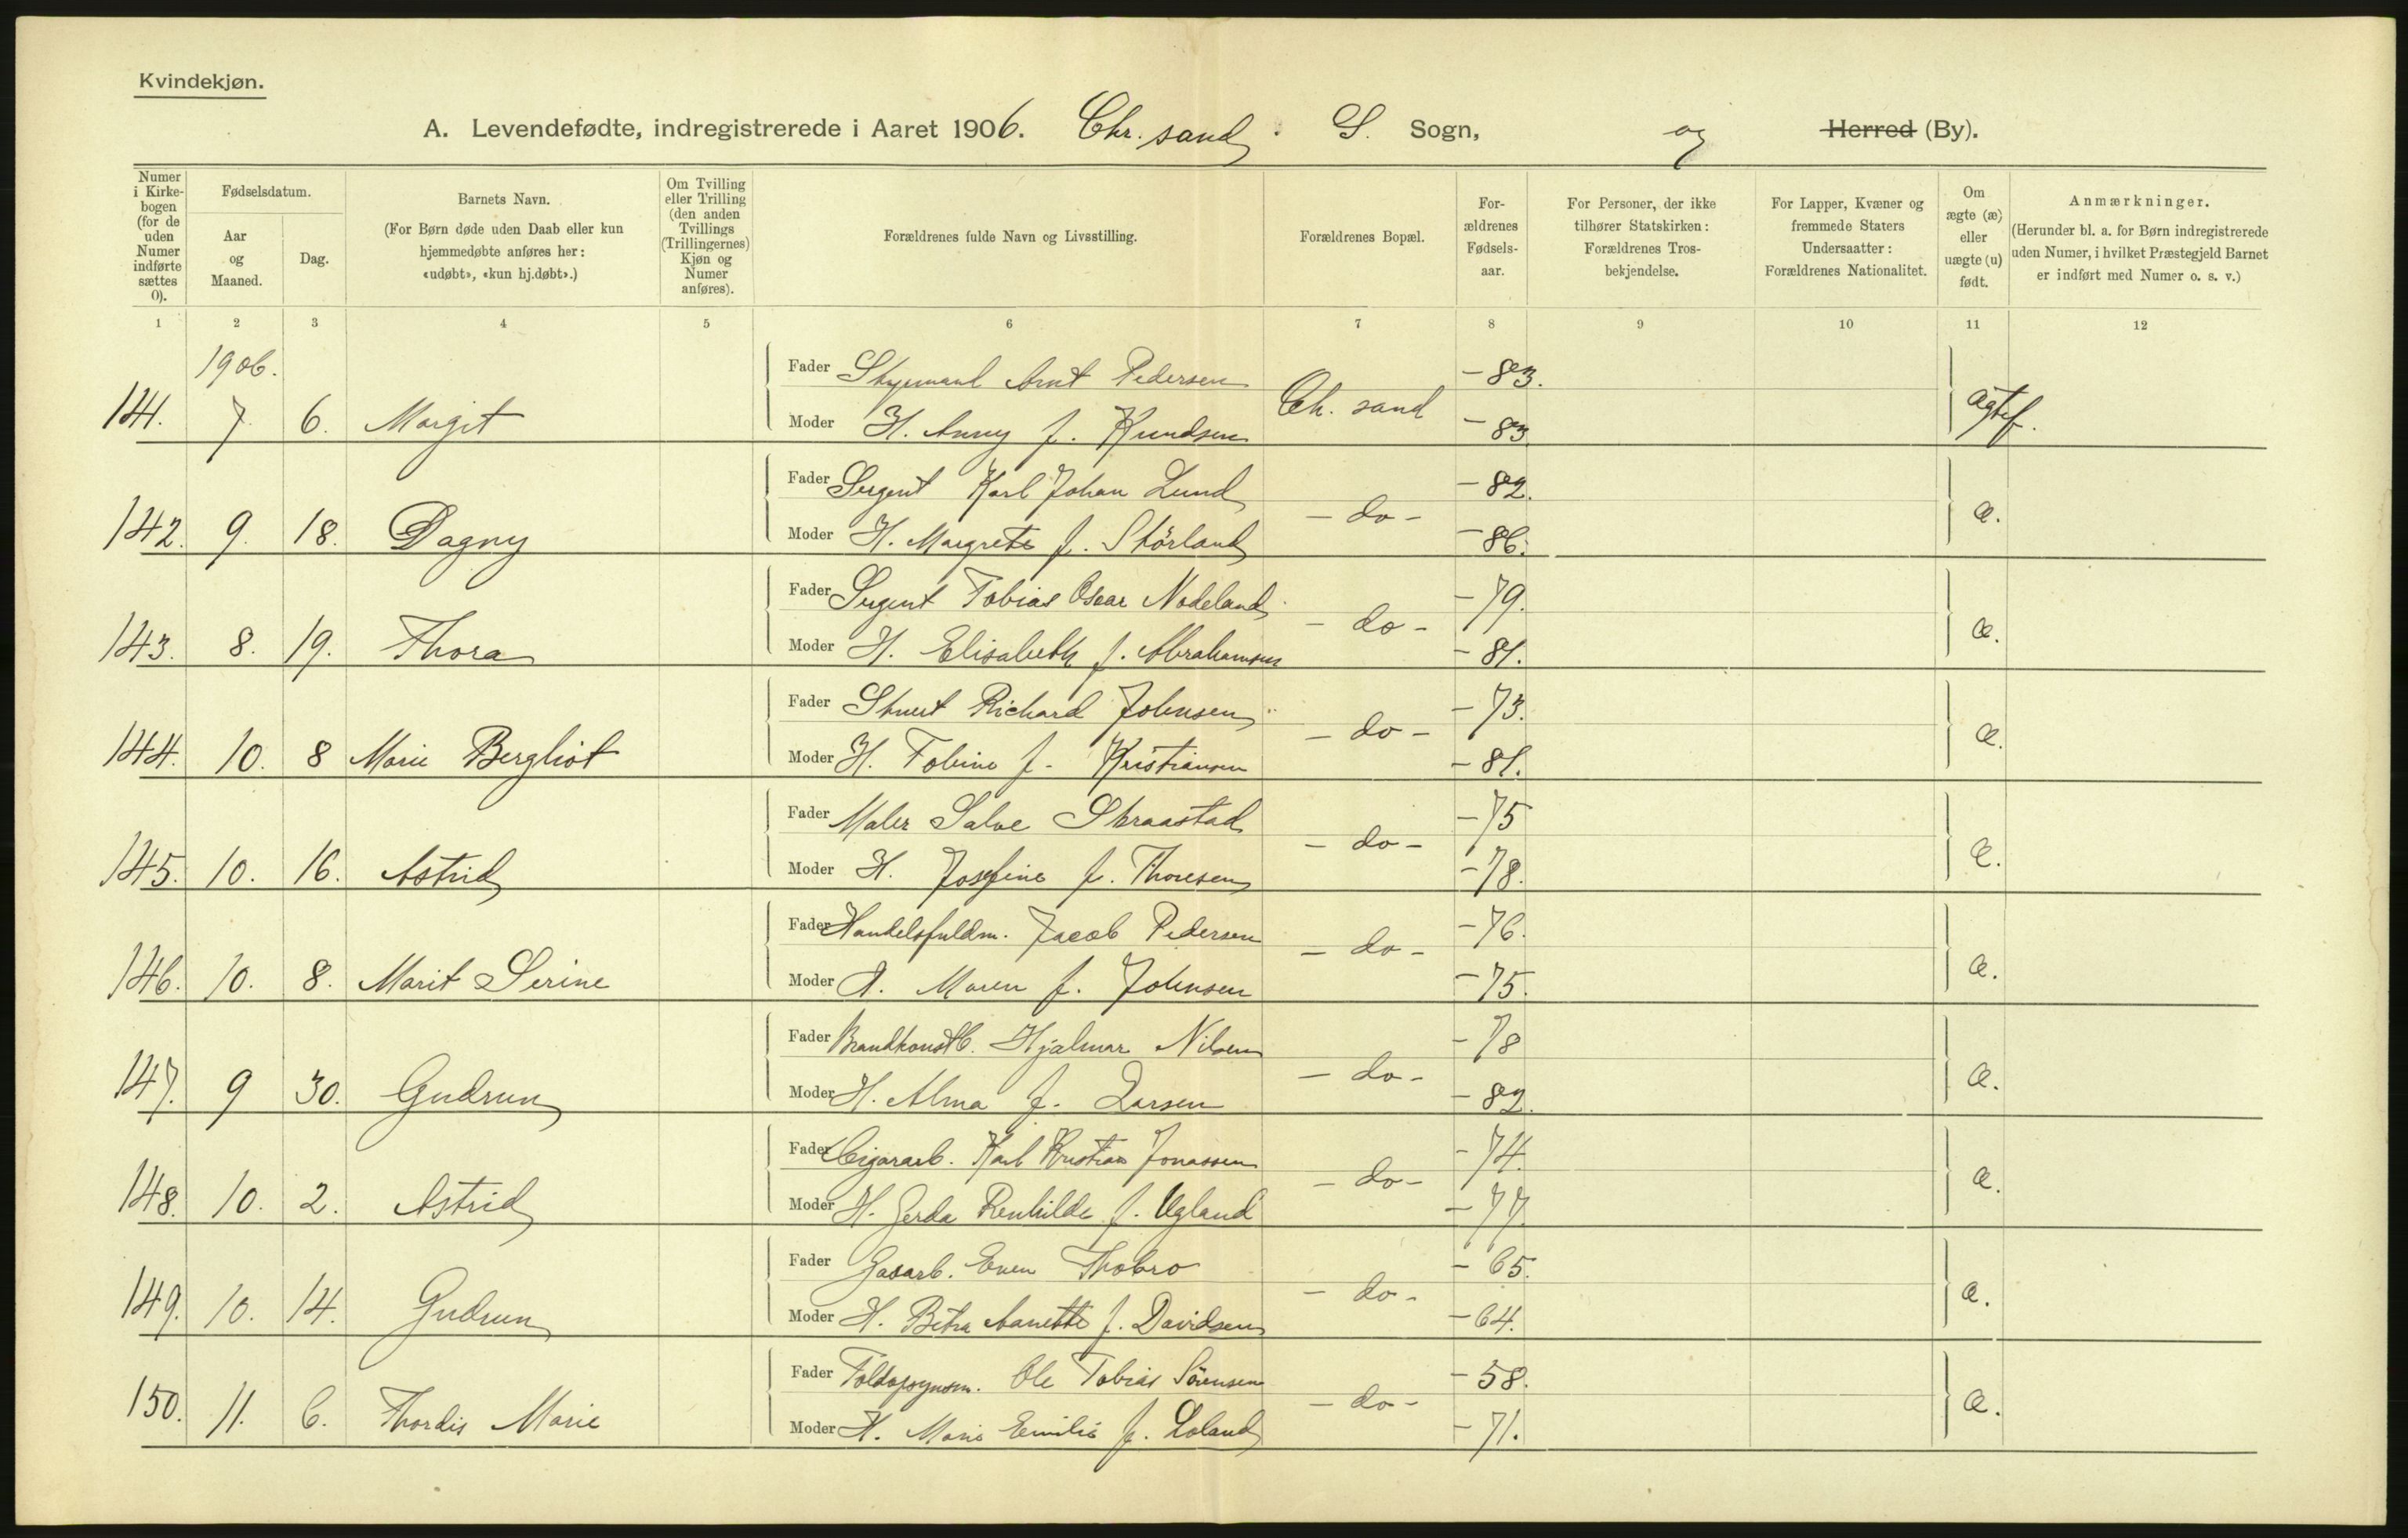 Kvindekjøn.
A. Levendefødte, indregistrerede i Aaret 1906. Chr. sand S. Sogn, og Herred (By).
Numer i Kirkebogen (for de uden Numer indførte sættes 0).
Fødselsdatum.
Aar og Maaned.
Dag.
Barnets Navn.
(For Børn døde uden Daab eller kun hjemmedøbte anføres her: «udøbt», «kun hj.døbt».)
Om Tvilling eller Trilling (den anden Tvillings (Trillingernes) Kjøn og Numer anføres).
Forældrenes fulde Navn og Livsstilling.
Forældrenes Bopæl.
Forældrenes Fødselsaar.
For Personer, der ikke tilhører Statskirken: Forældrenes Trosbekjendelse.
For Lapper, Kvæner og fremmede Staters Undersaatter: Forældrenes Nationalitet.
Om ægte (æ) eller uægte (u) født.
Anmærkninger.
(Herunder bl. a. for Børn indregistrerede uden Numer, i hvilket Præstegjeld Barnet er indført med Numer o. s. v.)
1 2 3 4 5 6 7 8 9 10 11 12
1906.
Fader Arnt Pedersen - 83.
141. 7. 6. Margit Moder H. Anny f. Knudsen Ch. sand - 83 ægtef.
Fader Sergent Karl Johan Lund - 82.
142. 9. 18. Dagny Moder H. Margrete f. Störland - do - - 86. æ.
Fader Sergent Tobias Oscar Nodeland - 79.
143. 8. 19. Thora Moder H. Elisabeth f. Abrahamsen - do - - 81. æ.
Fader Richard Johnsen - 73.
144. 10. 8 Marie Bergliot Moder H. Tobine f. Kristiansen - do - - 81. æ.
Fader Maler Salve Skraastad - 75
145. 10. 16. Astrid Moder H. Josefine f. Thoresen - do - - 78. æ.
Fader Handelsfuldm. Jacob Pedersen - 76.
146. 10. 8. Marit Serine Moder H. Maren f. Johnsen - do - - 75. æ.
Fader Brandkonstb. Hjalmar Nilsen - 78
147. 9 30. Gudrun Moder H. Alma f. Larsen - do - - 82. æ.
Fader Cigararb. Karl Kristian Jonassen - 74.
148. 10. 2. Astrid Moder H. Gerda Renhilde f. Ugland - do - - 77. æ.
Fader Gasarb. Even Thobro - 65.
149. 10. 14. Gudrun Moder H. Nanette f. Davidsen - do - - 64. æ.
Fader Toldopsynsm. Ole Tobias Sörensen - 58.
150. 11. 6. Thordis Marie Moder H. Marie Emilie f. Loland - do - - 71. æ.